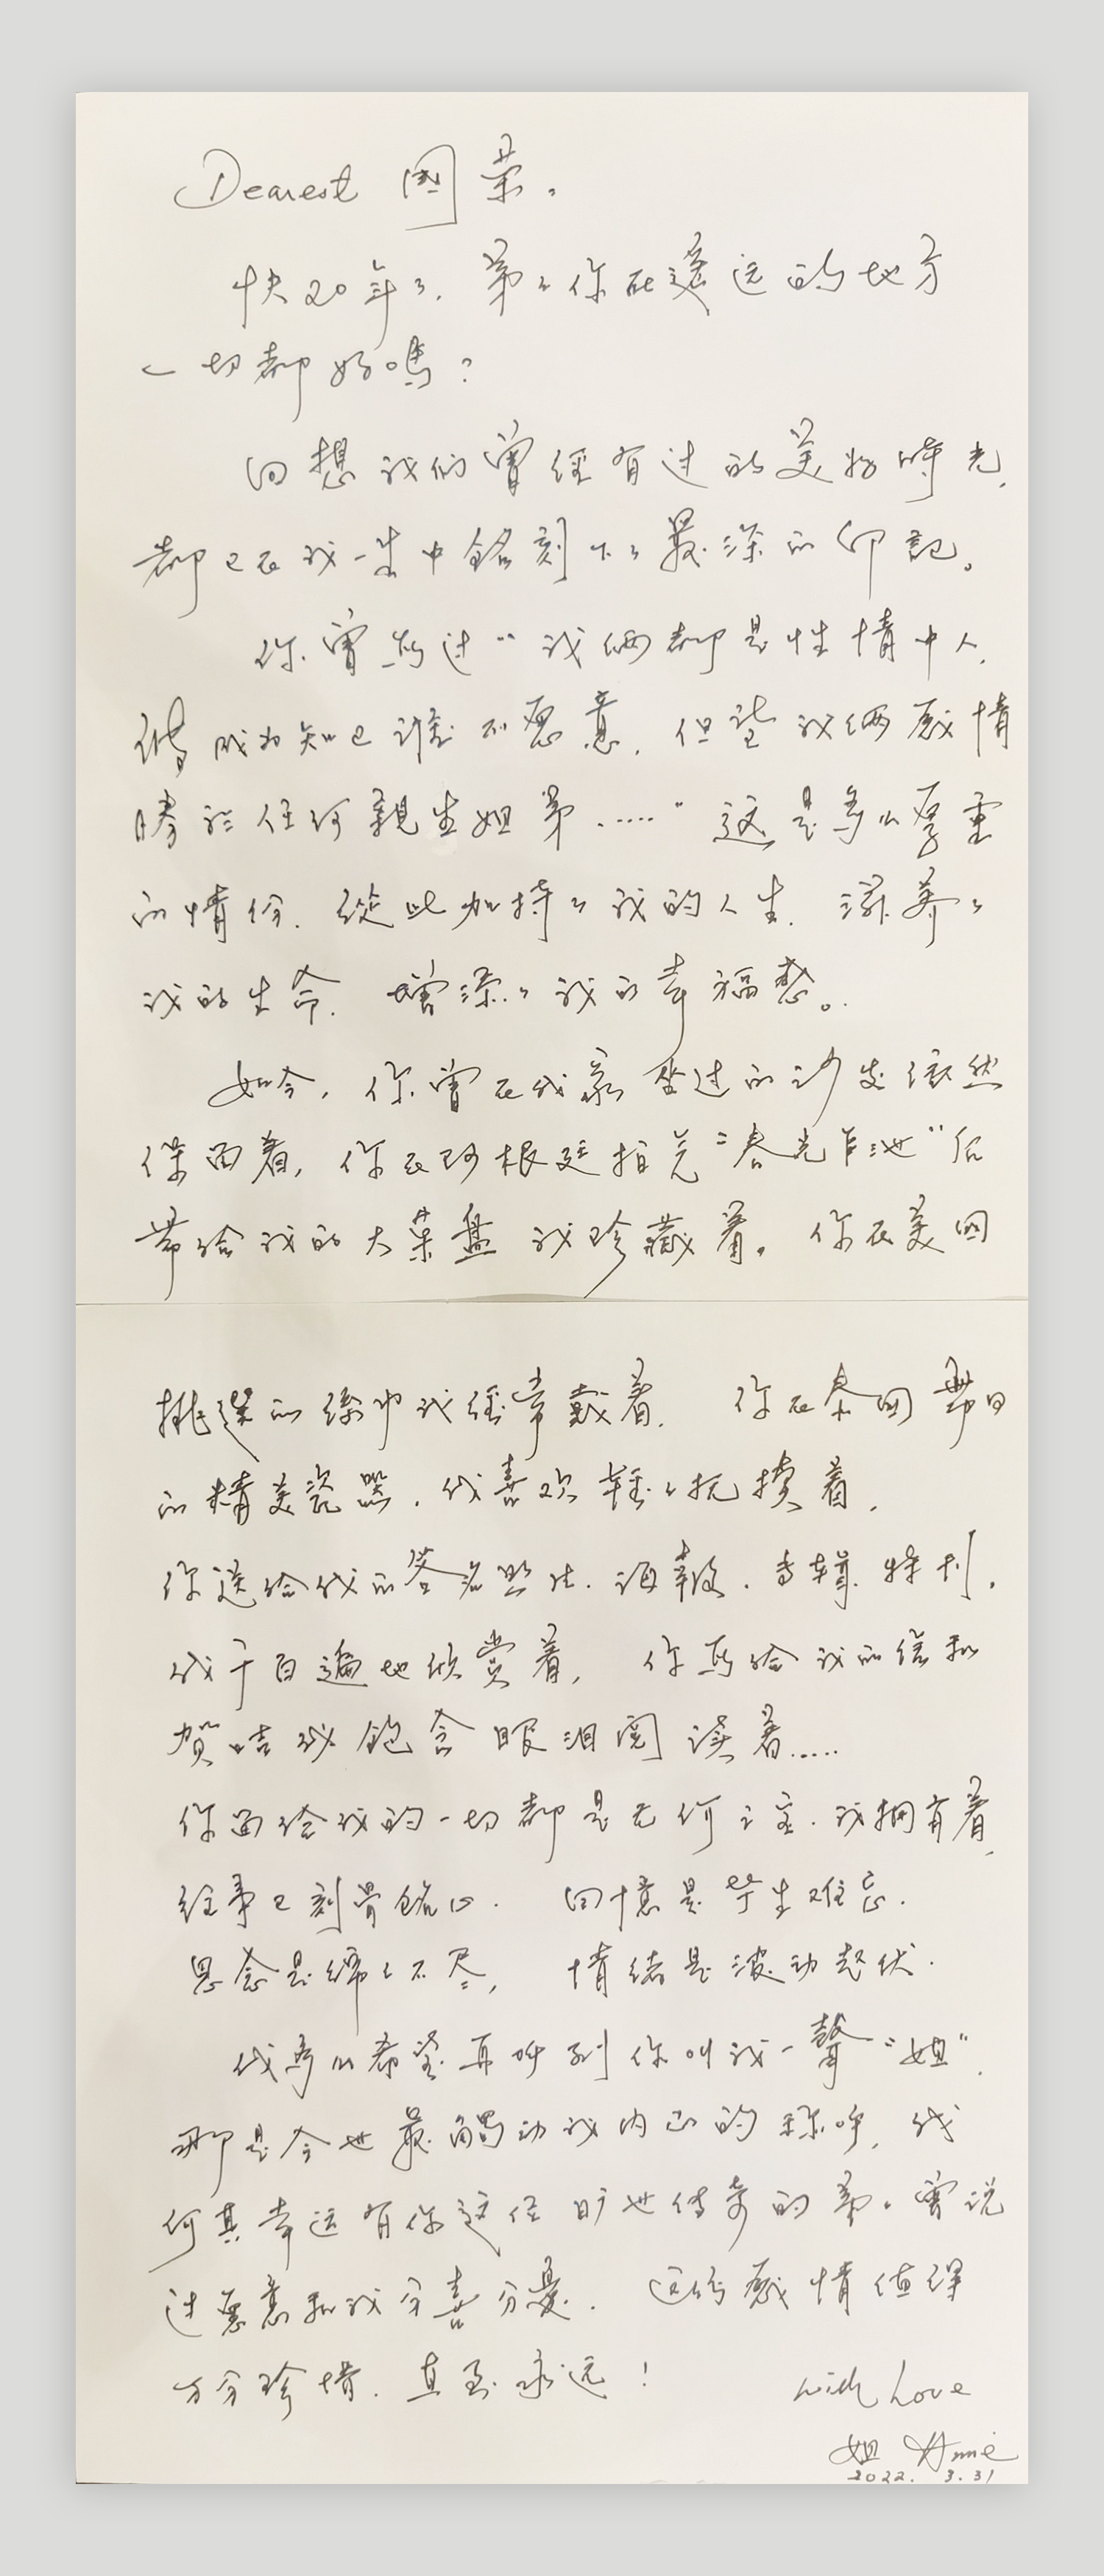 Dearest 國荣，
快20年了，弟弟你在遥远的地方
一切都好嗎？
回想我们曾經有过的美好時光，
都已在我一生中銘刻下了最深的印記。
你曾写过“我俩都是性情中人，
能成为知已谁不愿意，但望我俩感情
勝於任何親生姐弟……”这是多么厚重
的情份，從此加持了我的人生，滋养了
我的生命，增添了我的幸福感。
如今，你曾在我家坐过的沙发依然
保留着，你在阿根廷拍完“春光乍泄”后
带给我的大菜盘我珍藏着。你在美国
挑選的絲巾我經常戴着，你在泰国帶回
的精美瓷器，我喜欢轻轻抚摸着，
你送给我的签名照片、海報、专輯、特刊，
我千百遍地欣赏着，你写给我的信和
贺咭我飽含眼泪阅读着……
你留给我的一切都是无价之宝，我拥有着，
往事已刻骨銘心，回憶是毕生难忘，
思念是绵绵不尽，情绪是波动起伏。
我多么希望再听到你叫我一聲“姐”，
那是今世最触动我内心的称呼，我
何其幸运有你这位旷世传奇的弟弟曾说
过愿意和我分喜分憂，这份感情值得
万分珍惜，直至永远！
with Love
姐 Annie
2022. 3.31